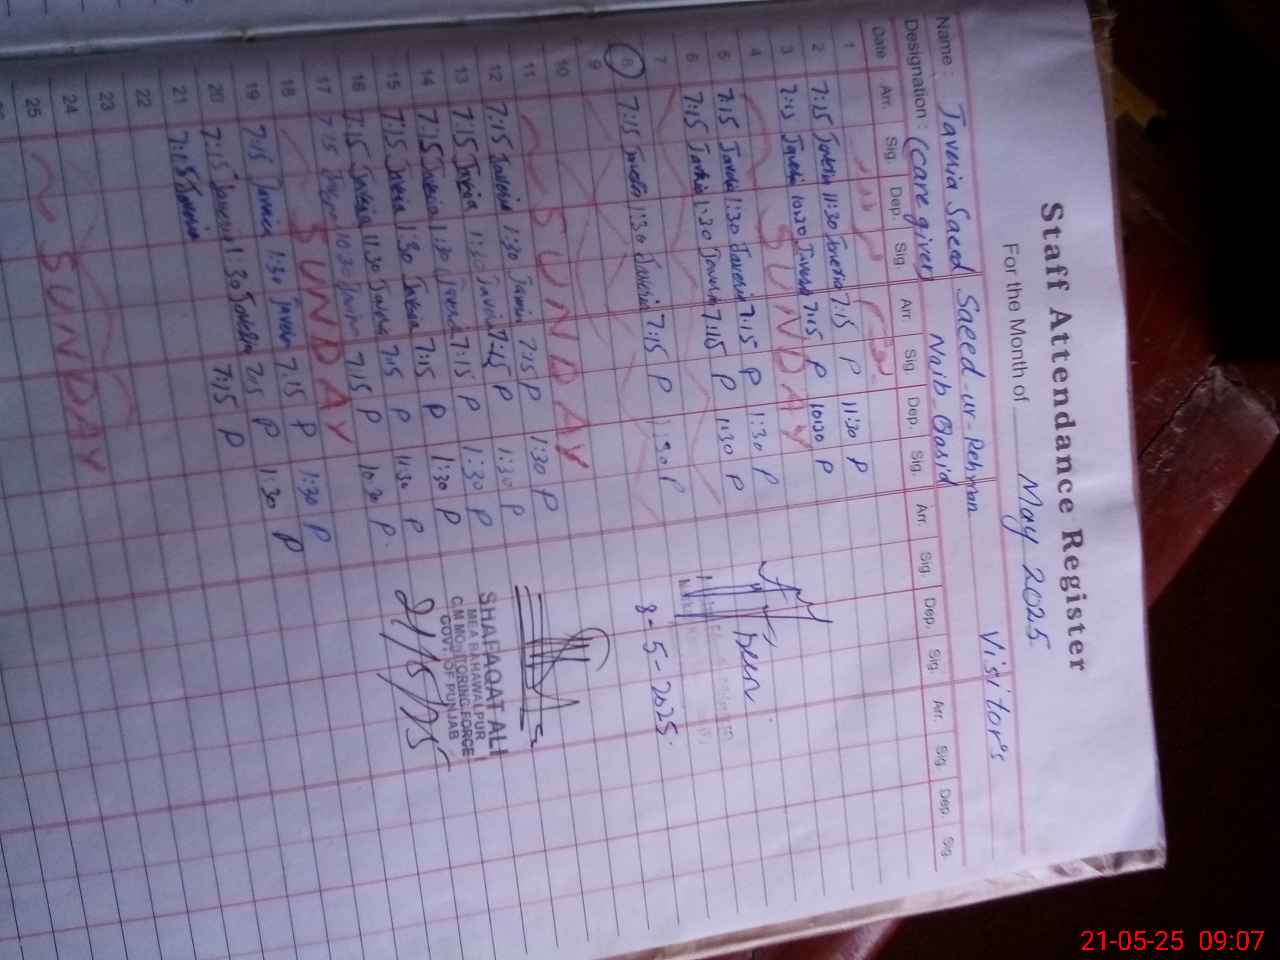 Staff Attendance Register
For the Month of May 2025
Name: Javeria Saeed Saeed-ur-Rehman Visitor's
Designation: (Care giver) Naib-Qasid
Date Arr. Sig. Dep. Sig. Arr. Sig. Dep. Sig. Arr. Sig. Dep. Sig. Arr. Sig. Dep. Sig.
1
2 7:15 Javeria 11:30 Javeria 7:15 P 11:30 P
3 7:15 Javeria 10:30 Javeria 7:15 P 10:30 P
4 SUNDAY
5 7:15 Javeria 1:30 Javeria 7:15 P 1:30 P
6 7:15 Javeria 1:30 Javeria 7:15 P 1:30 P
7
8 7:15 Javeria 1:30 Javeria 7:15 P 1:30 P
8-5-2025.
9
10
11 SUNDAY
12 7:15 Javeria 1:30 7:15 P 1:30 P
13 7:15 Javeria 1:30 Javeria 7:15 P 1:30 P
SHAFAQAT ALI
MEA BAHAWALPUR
C.M MONITORING FORCE
GOVT. OF PUNJAB
14 7:15 Javeria 1:30 Javeria 7:15 P 1:30 P
21/5/25
15 7:15 Javeria 1:30 Javeria 7:15 P 1:30 P
16 7:15 Javeria 11:30 Javeria 7:15 P 11:30 P
17 7:15 10:30 7:15 P 10:30 P
18 SUNDAY
19 7:15 Javeria 1:30 Javeria 7:15 P 1:30 P
20 7:15 Javeria 1:30 Javeria 7:15 P 1:30 P
21 7:15 Javeria 7:15 P
22
23
24
25 SUNDAY
21-05-25 09:07